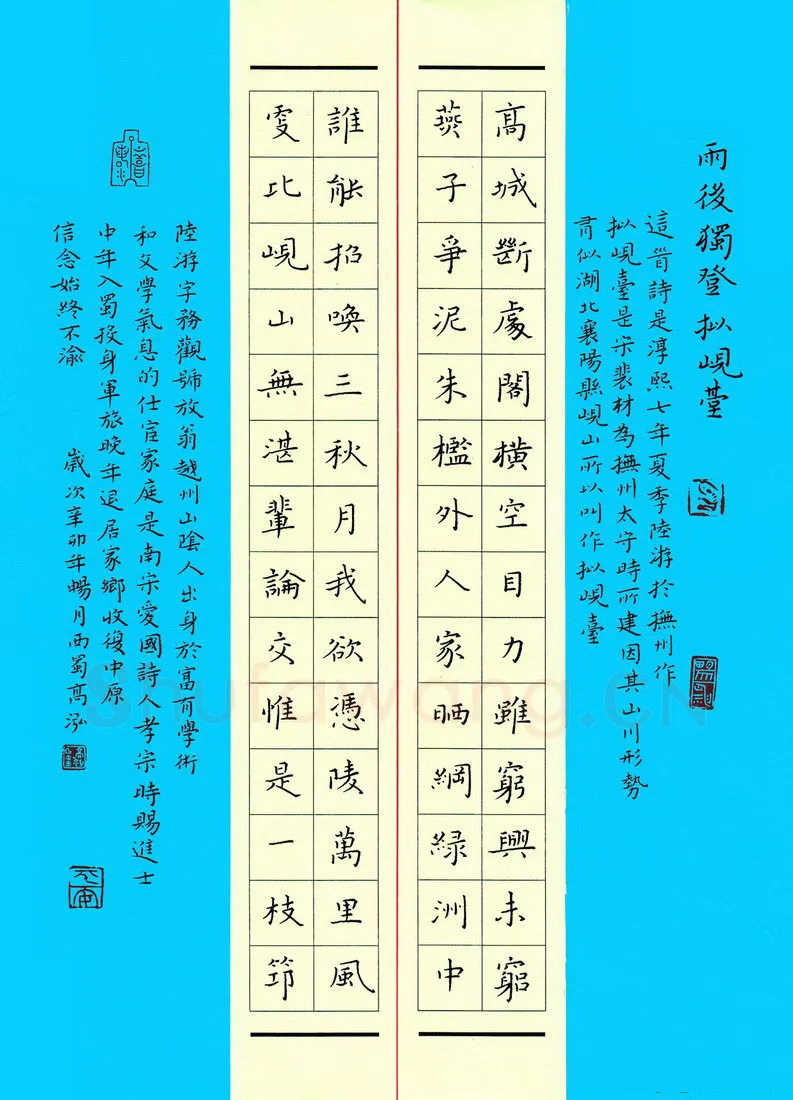 雨後獨登拟峴臺
這首詩是淳熙七年夏季陸游於撫州作
拟峴臺是宋裴材為撫州太守時所建因其山川形勢
肖似湖北襄陽縣峴山所以叫作拟峴臺
高城斷處閣橫空目力雖窮興未窮
燕子爭泥朱檻外人家晒網綠洲中
誰能招喚三秋月我欲憑陵萬里風
更比峴山無湛輩論交惟是一枝筇
陸游字務觀號放翁越州山陰人出身於富有學術
和文學氣息的仕宦家庭是南宋愛國詩人孝宗時賜進士
中年入蜀投身軍旅晚年退居家鄉收復中原
信念始終不渝
歲次辛卯年暢月西蜀高泓
Shufawang.CN